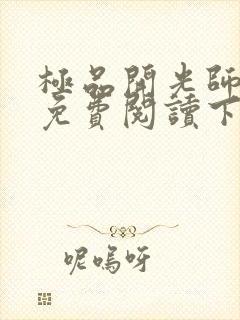 極品開光師
免費閱讀下
呢嗚呀